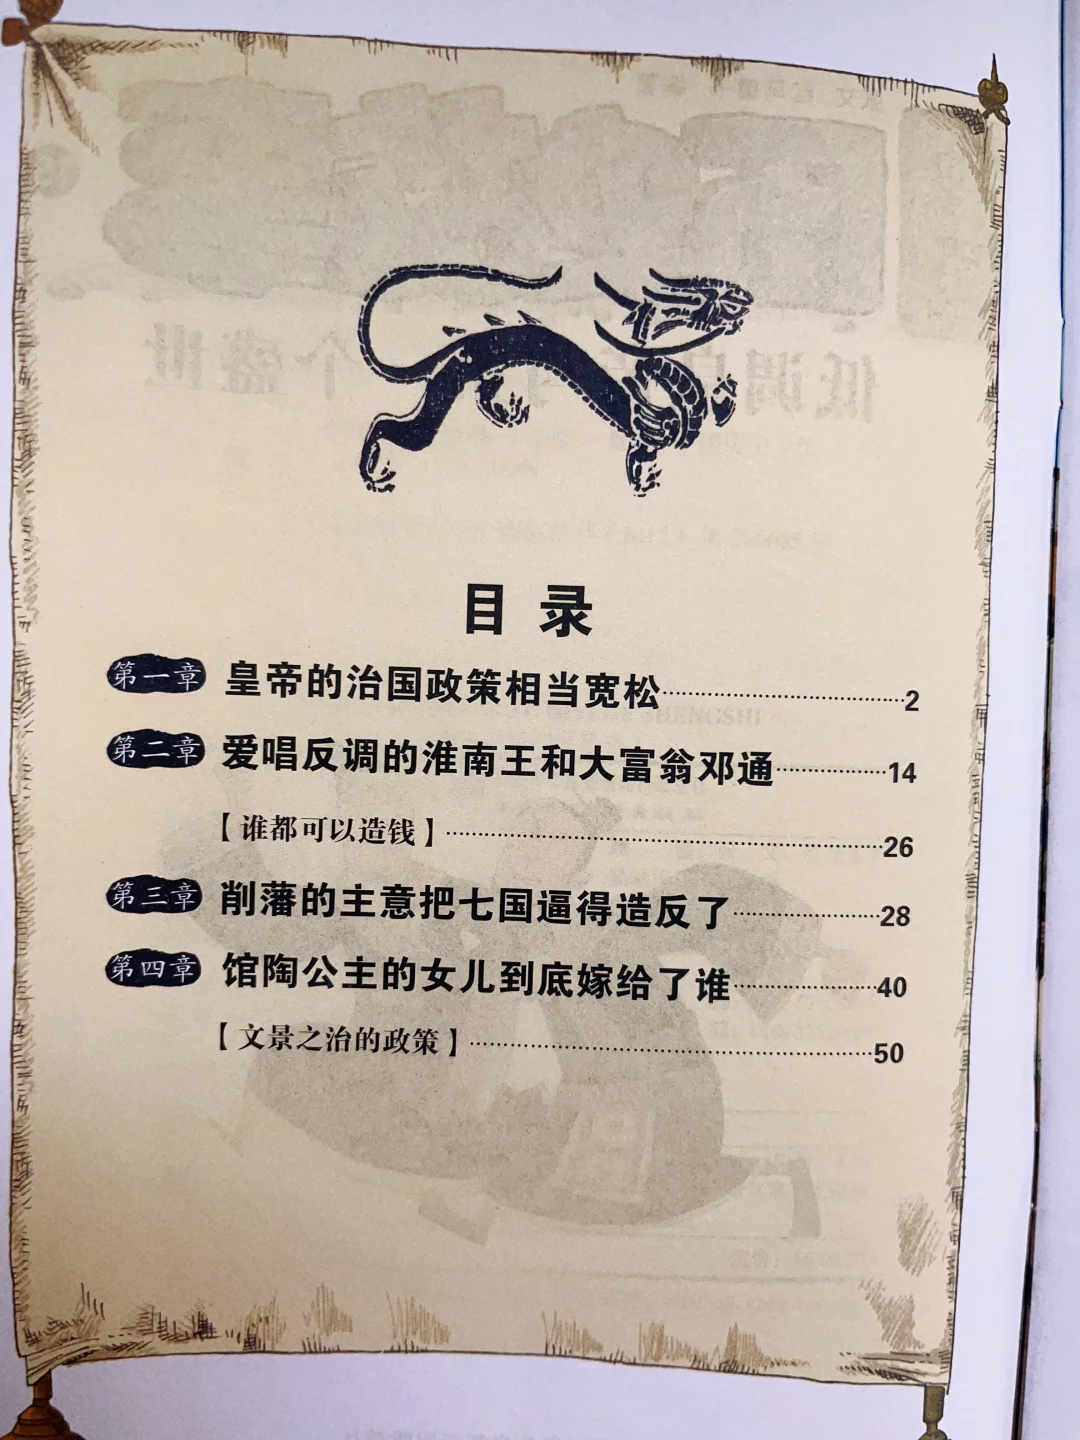 目录
第一章 皇帝的治国政策相当宽松……2
第二章 爱唱反调的淮南王和大富翁邓通……14
【谁都可以造钱】……26
第三章 削藩的主意把七国逼得造反了……28
第四章 馆陶公主的女儿到底嫁给了谁……40
【文景之治的政策】……50